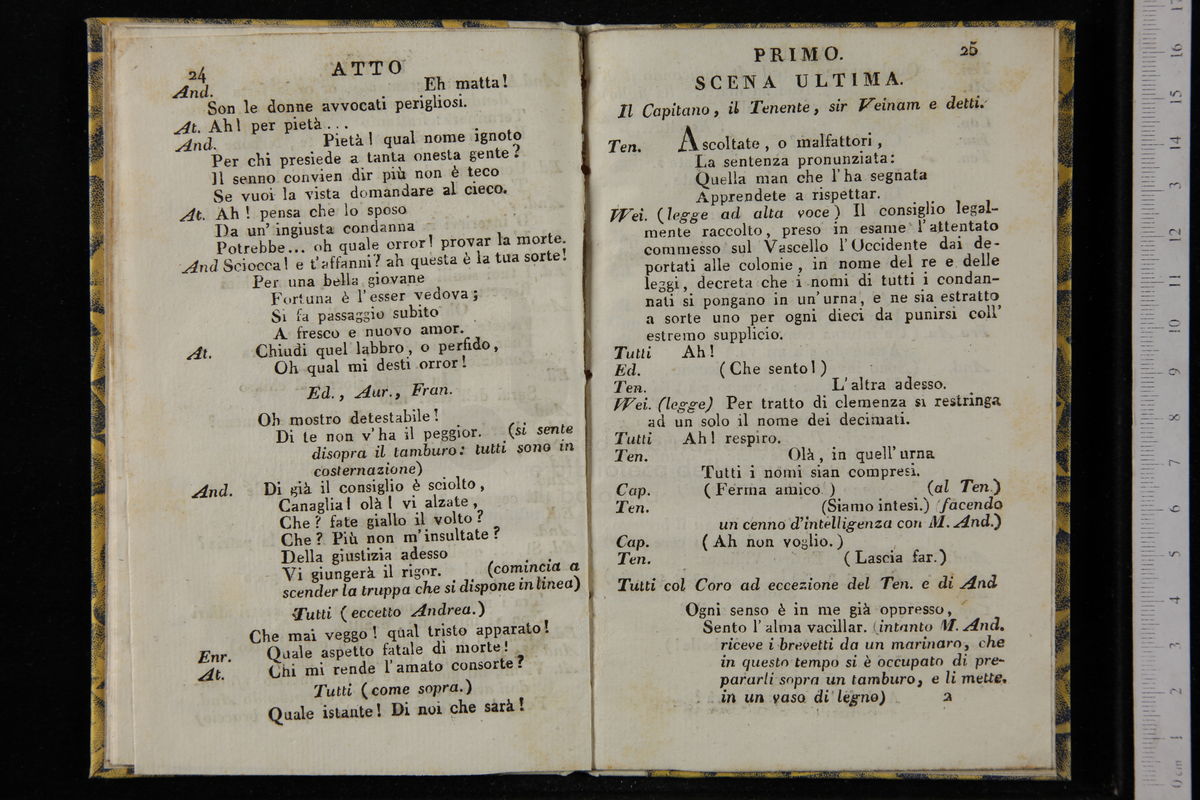 24
ATTO
And. Eh matta!
Son le donne avvocati perigliosi.
At. Ah! per pietà...
And. Pietà! qual nome ignoto
Per chi presiede a tanta onesta gente?
Il senno convien dir più non è teco
Se vuoi la vista domandare al cieco.
At. Ah! pensa che lo sposo
Da un' ingiusta condanna
Potrebbe... oh quale orror! provar la morte.
And Sciocca! e t'affanni? ah questa è la tua sorte!
Per una bella giovane
Fortuna è l'esser vedova;
Si fa passaggio subito
A fresco e nuovo amor.
At. Chiudi quel labbro, o perfido,
Oh qual mi desti orror!
Ed., Aur., Fran.
Oh mostro detestabile!
Di te non v'ha il peggior. (si sente
disopra il tamburo: tutti sono in
costernazione)
And. Di già il consiglio è sciolto,
Canaglia! olà! vi alzate,
Che? fate giallo il volto?
Che? Più non m'insultate?
Della giustizia adesso
Vi giungerà il rigor. (comincia a
scender la truppa che si dispone in linea)
Tutti (eccetto Andrea.)
Che mai veggo! qual tristo apparato!
Enr. Quale aspetto fatale di morte!
At. Chi mi rende l'amato consorte?
Tutti (come sopra.)
Quale istante! Di noi che sarà!
PRIMO. 25
SCENA ULTIMA.
Il Capitano, il Tenente, sir Veinam e detti.
Ten. Ascoltate, o malfattori,
La sentenza pronunziata:
Quella man che l'ha segnata
Apprendete a rispettar.
Wei. (legge ad alta voce) Il consiglio legal-
mente raccolto, preso in esame l'attentato
commesso sul Vascello l'Occidente dai de-
portati alle colonie, in nome del re e delle
leggi, decreta che i nomi di tutti i condan-
nati si pongano in un'urna, e ne sia estratto
a sorte uno per ogni dieci da punirsi coll'
estremo supplicio.
Tutti Ah!
Ed. (Che sento!)
Ten. L'altra adesso.
Wei. (legge) Per tratto di clemenza si restringa
ad un solo il nome dei decimati.
Tutti Ah! respiro.
Ten. Olà, in quell'urna
Tutti i nomi sian compresi.
Cap. (Ferma amico) (al Ten.)
Ten. (Siamo intesi.) (facendo
un cenno d'intelligenza con M. And.)
Cap. (Ah non voglio.)
Ten. (Lascia far.)
Tutti col Coro ad eccezione del Ten. e di And
Ogni senso è in me già oppresso,
Sento l'alma vacillar. (intanto M. And.
riceve i brevetti da un marinaro, che
in questo tempo si è occupato di pre-
pararli sopra un tamburo, e li mette
in un vaso di legno) 2